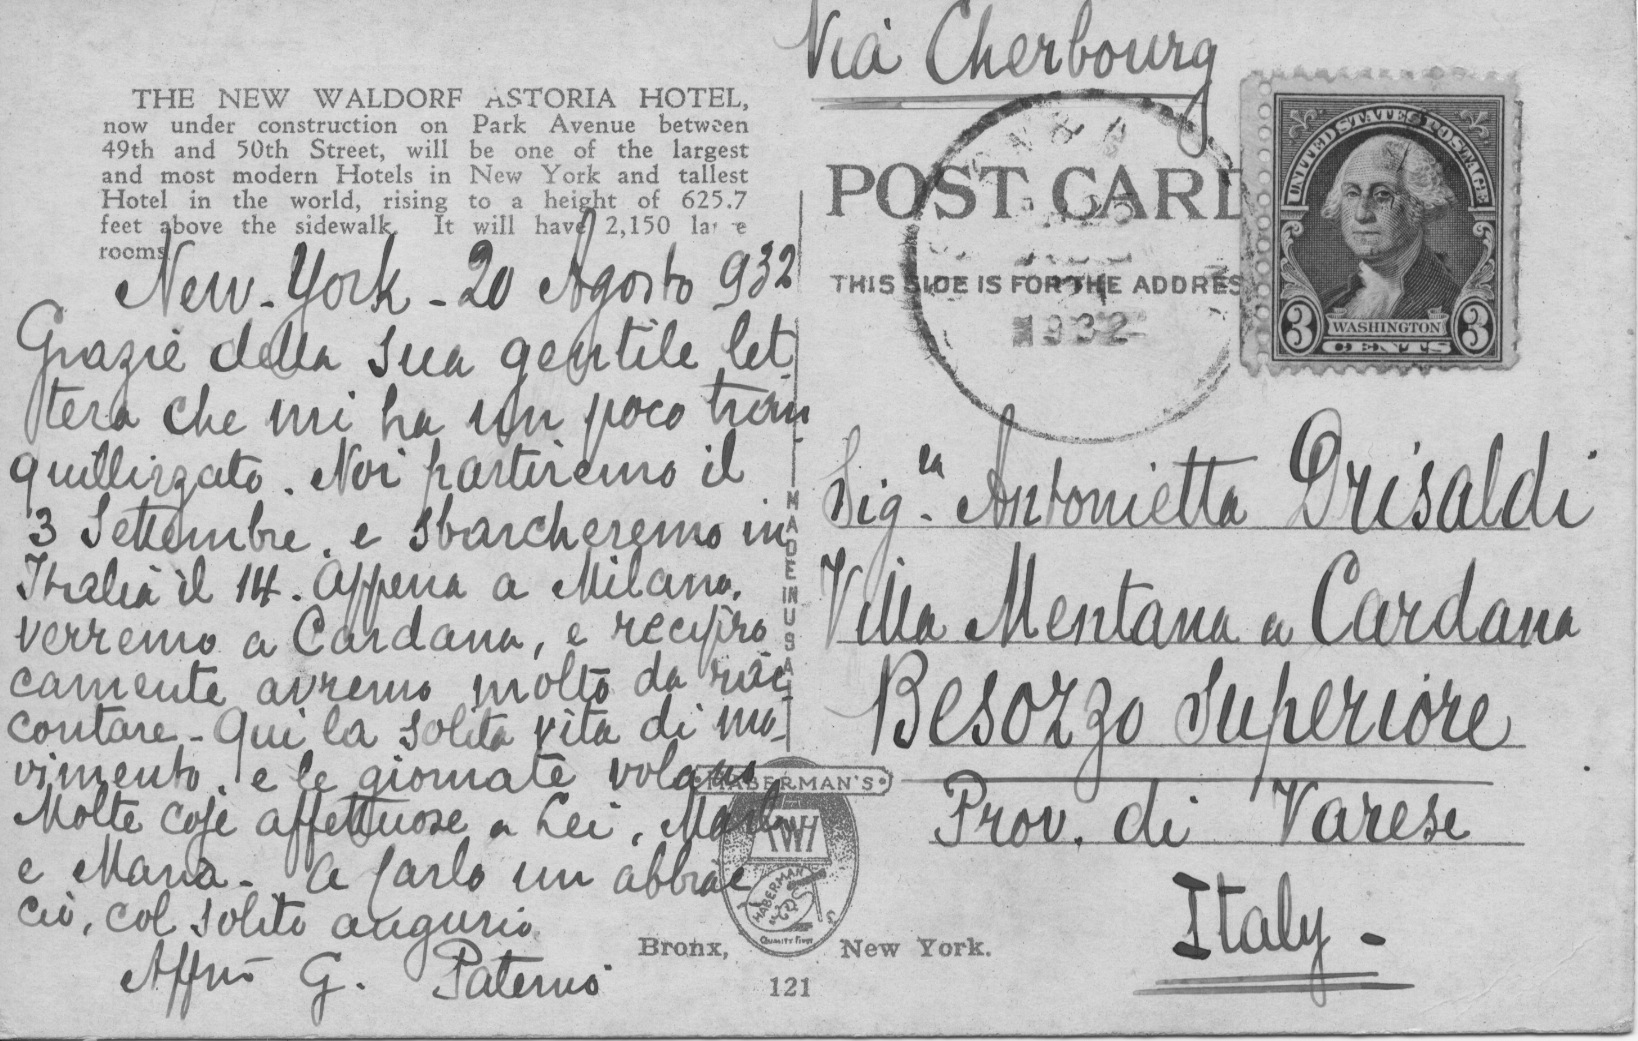 THE NEW WALDORF ASTORIA HOTEL,
now under construction on Park Avenue between
49th and 50th Street, will be one of the largest
and most modern Hotels in New York and tallest
Hotel in the world, rising to a height of 625.7
feet above the sidewalk. It will have 2,150
rooms.
New-York - 20 Agosto 932
Grazie della sua gentile let-
tera che mi ha un poco tran-
quillizzato. Noi partiremo il
3 Settembre, e sbarcheremo in
Italia il 14. Appena a Milano,
verremo a Cardana, e recipro
camente avremo molto da rac-
contare - Qui la solita vita di mo-
vimento, e le giornate volano
Molte cose affettuose a Lei,
e Maria - a Carlo un abbrac
cio, col solito augurio
Affmo G. Paternò
Via Cherbourg
POST CARD
THIS SIDE IS FOR THE ADDRES
1932
UNITED STATES POSTAGE
3 WASHINGTON 3
CENTS
Sig.ra Antonietta Drisaldi
Villa Mentana a Cardana
Besozzo Superiore
Prov. di Varese
Italy -
MADE IN U.S.A.
HABERMAN'S
HABERMAN
QUALITY FIRST
Bronx, New York.
121